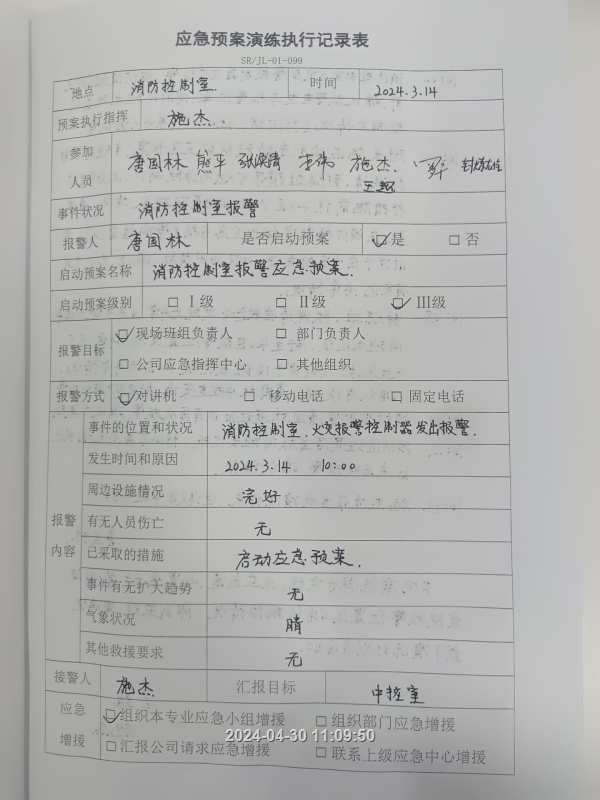 应急预案演练执行记录表
SR/JL-01-099
地点 消防控制室. 时间 2024.3.14
预案执行指挥 施杰.
参加人员 唐国林 熊平 李伟 施杰.
事件状况 消防控制室报警
报警人 唐国林 是否启动预案 ☑是 □否
启动预案名称 消防控制室报警应急预案.
启动预案级别 □Ⅰ级 □Ⅱ级 ☑Ⅲ级
报警目标 ☑现场班组负责人 □部门负责人
□公司应急指挥中心 □其他组织
报警方式 ☑对讲机 □移动电话 □固定电话
报警内容
事件的位置和状况 消防控制室.火灾报警控制器发出报警.
发生时间和原因 2024.3.14 10:00
周边设施情况 完好
有无人员伤亡 无
已采取的措施 启动应急预案.
事件有无扩大趋势 无
气象状况 晴
其他救援要求 无
接警人 施杰 汇报目标 中控室
应急增援 ☑组织本专业应急小组增援 □组织部门应急增援
□汇报公司请求应急增援 □联系上级应急中心增援
2024-04-30 11:09:50